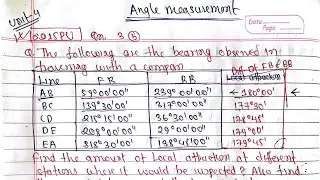 Unit-4
Angle measurement
Date
Page
2015PU Qn 3 (b)
Q. The following are the bearing observed in
traversing with a compass
Line F.B B.B Diff. of FB & BB
Local attraction
AB 59°00'00" 239°00'00" 180°00'
BC 139°30'00" 317°00'00" 177°30'
CD 215°15'00" 36°30'00" 178°45'
DE 208°00'00" 29°00'00" 179°00'
EA 318°30'00" 138°45'00" 179°45'
Find the amount of Local attraction at different
stations where it would be suspected? Also find: